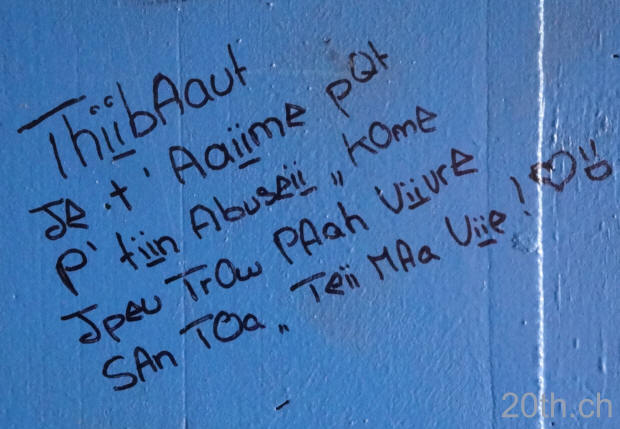 ThiibAaut
Je t'Aaiime pQt
p'tiin Abuseii ,, kOme
Jpeu TrOw PAah Viivre
SAn TOa ,, Teii MAa Viie ! ♡
20th.ch